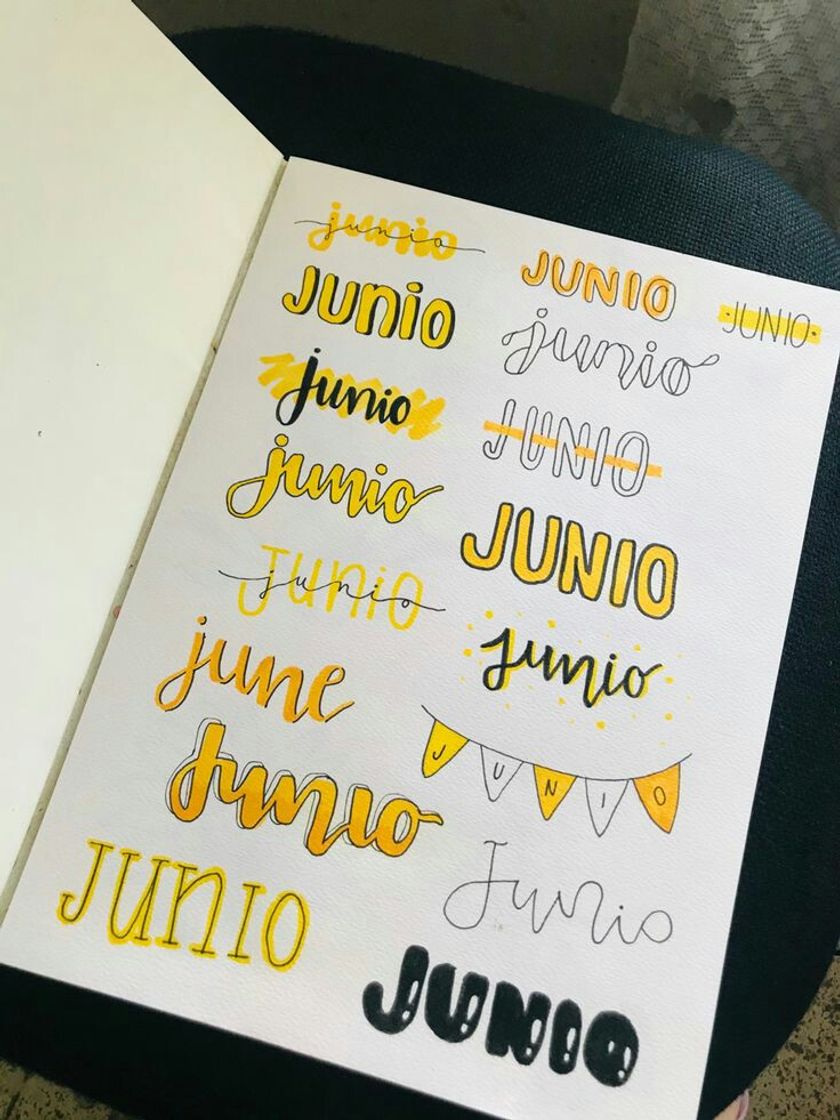 junio
junio
JUNIO
JUNIO
Junio
junio
junio
JUNIO
junio
JUNIO
Junio
junio
june
junio
JUNIO
Junio
Junio
JUNIO
JUNIO